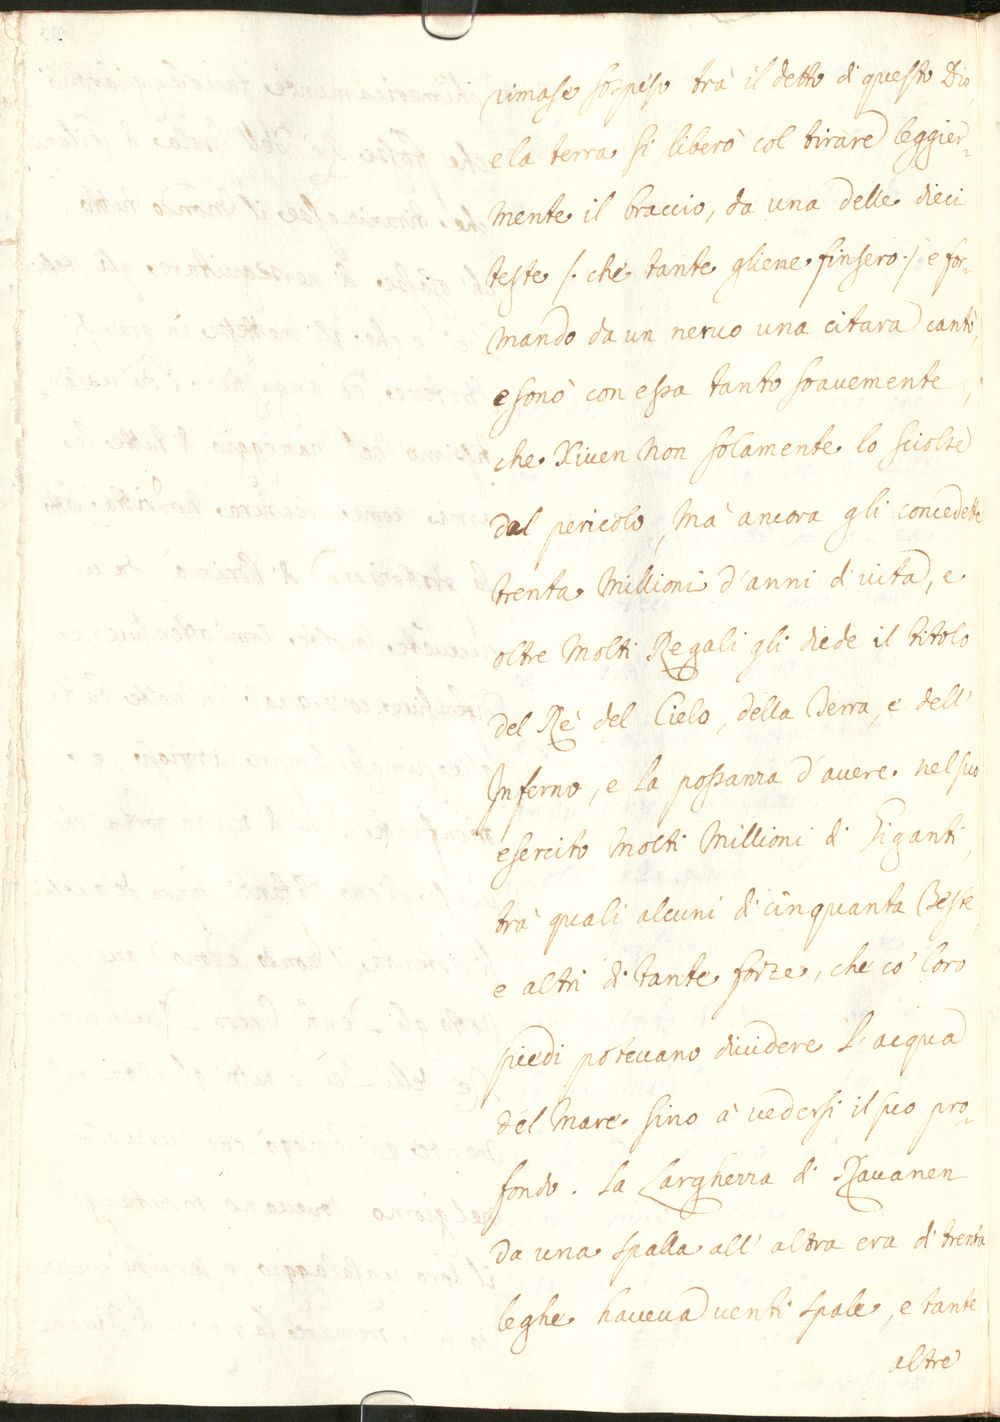 rimase sospeso trà il detto di questo Dio
e la terra si liberò col tirare leggier-
mente il braccio, da una delle dieci
teste /. che tante gliene finsero ./ e for-
mando da un neruo una citara cantò,
e sonò con essa tanto soauemente,
che Xiuen non solamente lo sciolse
dal pericolo, mà ancora gli concedette
trenta Millioni d'anni di uita, e
oltre molti Regali gli diede il titolo
del Rè del Cielo, della Terra, e dell'
Inferno, e la possanza d'auere nel suo
esercito molti Millioni di Giganti,
trà quali alcuni di cinquanta Teste,
e altri di tante forze, che co' loro
piedi poteuano diuidere l'acqua
del Mare sino à uedersi il suo pro-
fondo. La Larghezza di Rauanen
da una spalla all'altra era di trenta
leghe haueua uenti spale, e tante
altre